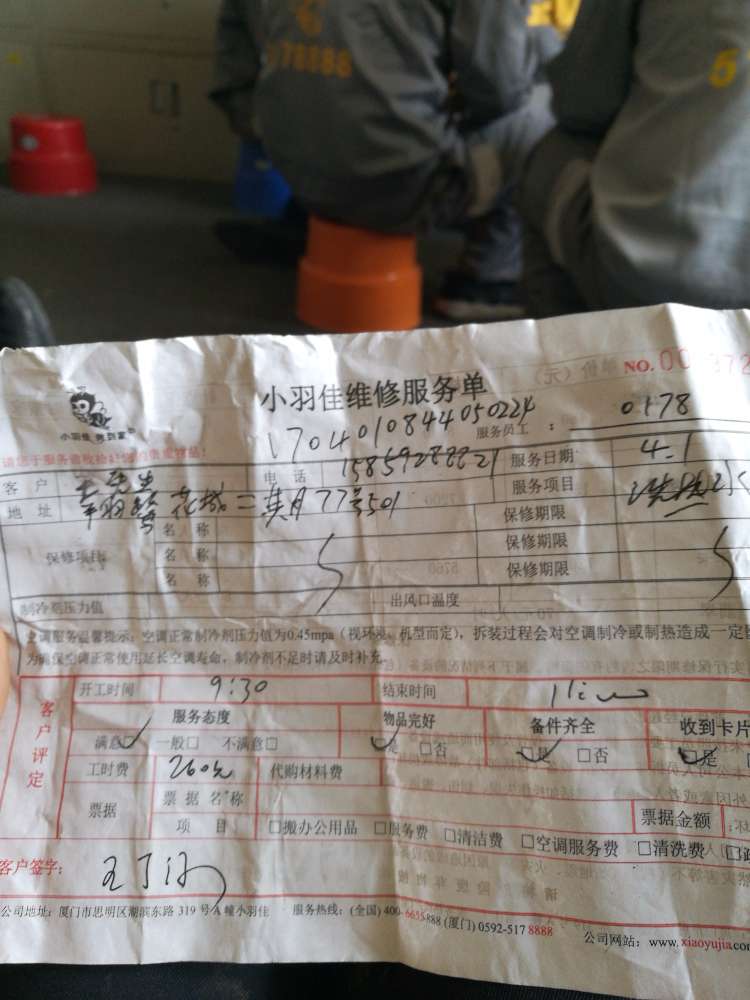 78888
5
NO.00 372
小羽佳维修服务单
小羽佳 务到家中
1704010844050224
服务员工：0178
请您于服务前收拾好您的贵重物品！
客户 王先生 电话 15859288821 服务日期 4.1
地址 花城二英月77号501 服务项目
保修项目
名称 保修期限
名称 保修期限
名称 保修期限
制冷剂压力值 出风口温度
空调服务温馨提示：空调正常制冷剂压力值为0.45mpa（视环境、机型而定），拆装过程会对空调制冷或制热造成一定
为确保空调正常使用延长空调寿命，制冷剂不足时请及时补充
客户评定
开工时间 9:30 结束时间 11:00
服务态度 物品完好 备件齐全 收到卡片
满意☑ 一般□ 不满意□ ☑是 □否 ☑是 □否 ☑是
工时费 260元 代购材料费
票据 票据名称 票据金额
项目 □搬办公用品 □服务费 □清洁费 □空调服务费 □清洗费
客户签字：
公司地址：厦门市思明区湖滨东路 319 号 A 幢小羽佳 服务热线：(全国) 400-6655888 (厦门) 0592-517 8888 公司网站：www.xiaoyujia.com